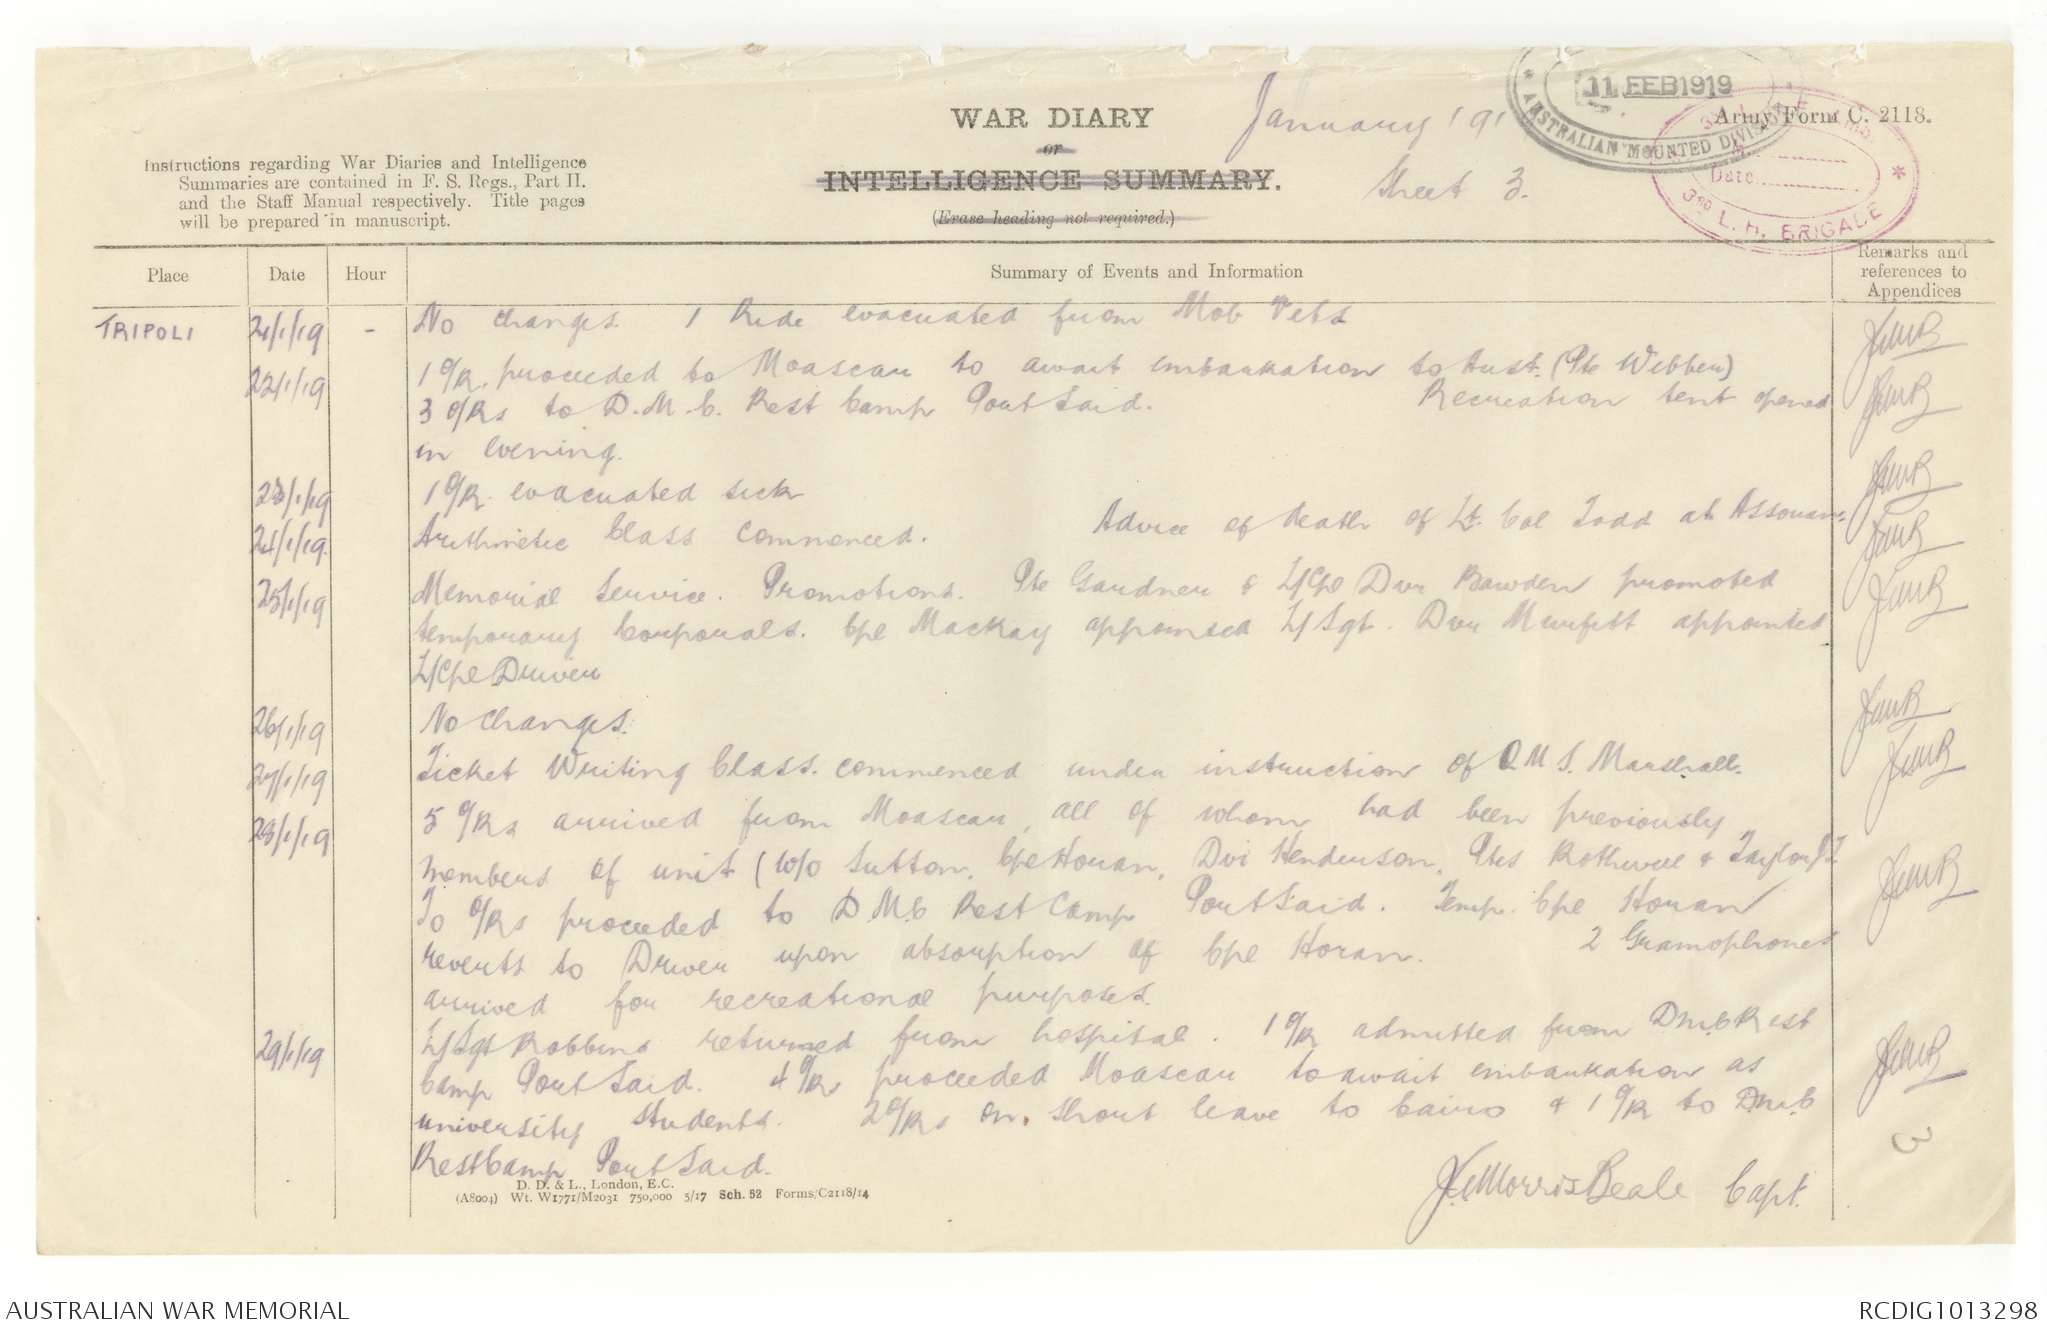 WAR DIARY
or
INTELLIGENCE SUMMARY.
(Erase heading not required.)
January 191
Sheet 3.
11 FEB 1919
AUSTRALIAN MOUNTED DIVISION
Army Form C. 2118.
Date
3RD L. H. BRIGADE
Instructions regarding War Diaries and Intelligence
Summaries are contained in F. S. Regs., Part II.
and the Staff Manual respectively. Title pages
will be prepared in manuscript.
Place Date Hour Summary of Events and Information Remarks and references to Appendices
TRIPOLI 21/1/19 - No changes 1 Ride evacuated from Mob Vets JMB
22/1/19 1 O/R. proceeded to Moascar to await embarkation to Aust. (Pte Webber)
3 O/Rs to D.M.C. Rest Camp Port Said. Recreation tent opened JMB
in evening.
23/1/19 1 O/R. evacuated sick JMB
24/1/19. Arithmetic Class commenced. Advice of death of Lt. Col Todd at Assouan. JMB
25/1/19 Memorial Service. Promotions. Pte Gardner & L/Cpl Dvr Bawden promoted JMB
temporary Corporals. Cpl Mackay appointed L/Sgt. Dvr Murfett appointed
L/Cpl Driver
26/1/19 No changes. JMB
27/1/19 Ticket Writing Class. commenced under instruction of Q.M.S. Marshall. JMB
28/1/19 5 O/Rs arrived from Moascar, all of whom had been previously
members of unit (W/O Sutton, Cpl Horan, Dvr Henderson, Ptes Rothwell & Taylor J.T. JMB
To O/Rs proceeded to D.M.C Rest Camp Port Said. Temp. Cpl Horan
reverts to Driver upon absorption of Cpl Horan. 2 Gramophones
arrived for recreational purposes.
29/1/19 L/Sgt Robbins returned from hospital. 1 O/R admitted from D.M.C Rest
Camp Port Said. 4 O/R proceeded Moascar to await embarkation as JMB
university students. 2 O/Rs on. short leave to Cairo & 1 O/R to D.M.C
Rest Camp Port Said.
3
J. Morris Beale Capt.
D. D. & L., London, E.C.
(A8004) Wt. W1771/M2031 750,000 5/17 Sch. 52 Forms/C2118/14
AUSTRALIAN WAR MEMORIAL
RCDIG1013298